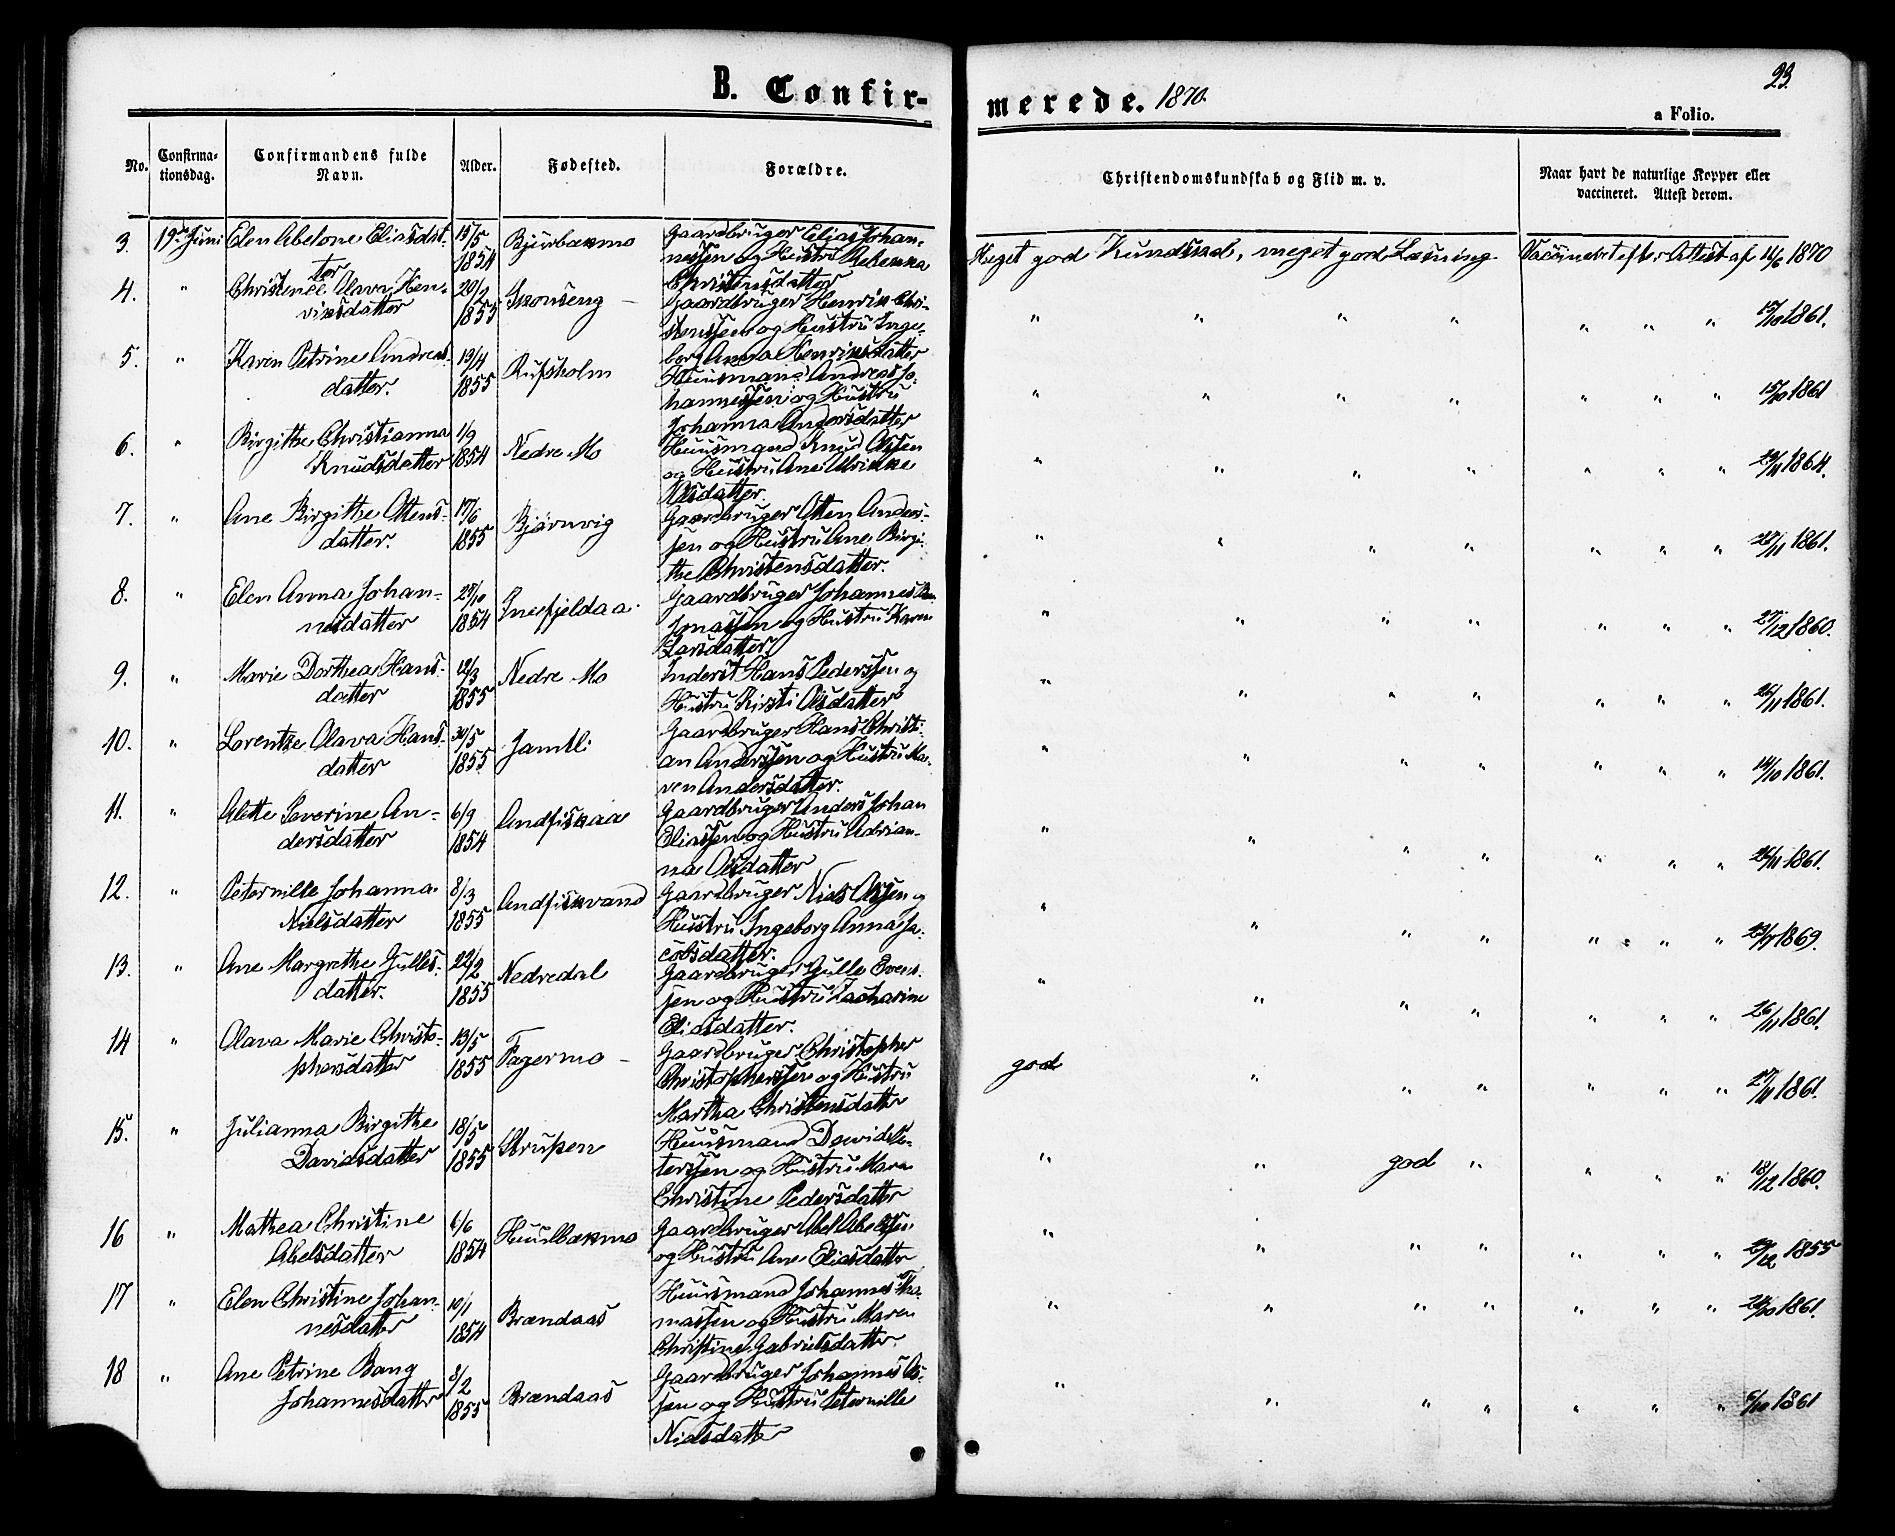 B. Confir-
merede. 1870.
23.
a Folio.
No.
Confirma-
tionsdag.
Confirmandens fulde
Navn.
Alder.
Fødested.
Forældre.
Christendomskundskab og Flid m. v.
Naar havt de naturlige Kopper eller
vaccineret. Attest derom.
3. 19de Juni Elen Abelone Eliasdat-
ter
15/5
1854
Bjurbækmo
Gaardbruger Elias Johan-
nessen og Hustru Rebekka
Christensdatter
Meget god Kundskab, meget god Læsning.
Vaccineret efter Attest af 14/6 1870
4. " Christence Olava Hen-
riksdatter
20/2
1855
Skonseng -
Gaardbruger Henrik Chri-
stenssen og Hustru Inge-
borg Anna Henriksdatter
" " " " " " " 15/10 1861.
5. " Karen Petrine Andreas-
datter.
13/4
1855
Rufsholm
Huusmand Andreas Jo-
hannessen og Hustru
Johanna Andersdatter
" " " " " " " 15/10 1861
6. " Birgithe Christianna
Knudsdatter
1/9
1854
Nedre Mo
Huusmand Knud Olssen
og Hustru Ane Ulrikke
Olsdatter.
" " " " " " " 29/11 1864.
7. " Ane Birgithe Ottens-
datter.
17/6
1855
Bjørnvig
Gaardbruger Otten Anders-
sen og Hustru Ane Birgi-
the Christensdatter.
" " " " " " " 27/11 1861.
8. " Elen Anna Johan-
nesdatter
27/10
1854
Snefjeldaa.
Gaardbruger Johannes
Jonassen og Hustru Karen
Larsdatter
" " " " " " " 27/12 1860.
9. " Marie Dorthea Hans-
datter
12/3
1855
Nedre Mo
Inderst Hans Pederssen og
Hustru Kirsti Olsdatter
" " " " " " " 26/11 1861.
10. " Lorentze Olava Hans-
datter
30/5
1855
Jamtli
Gaardbruger Hans Christi-
an Anderssen og Hustru Ma-
ren Andersdatter.
" " " " " " " 14/10 1861.
11. " Alette Severine An-
dersdatter
6/9
1854
Andfiskaa
Gaardbruger Anders Johan
Eliassen og Hustru Adrian-
na Olsdatter
" " " " " " " 26/11 1861.
12. " Peternille Johanna
Nielsdatter
8/3
1855
Andfiskvand
Gaardbruger Niels Olssen og
Hustru Ingeborg Anna Ja-
cobsdatter.
" " " " " " " 1869.
13. " Ane Margrethe Gulles-
datter.
22/2
1855
Nedredal
Gaardbruger Gulle Evens-
sen og Hustru Zacharine
Eliasdatter.
" " " " " " " 26/11 1861.
14 " Olava Marie Christo-
phersdatter
13/5
1855
Fagermo -
Gaardbruger Christopher
Christopherssen og Hustru
Martha Christensdatter
god " " " " " " 27/11 1861.
15. " Julianna Birgithe
Davidsdatter
18/5
1855
Strupen
Huusmand David Pe-
terssen og Hustru Maren
Christine Pedersdatter
" " god " " " " 18/12 1860.
16 " Mathea Christine
Abelsdatter
6/6
1854
Huulbækmo
Gaardbruger Abel Abelssen
og Hustru Ane Eliasdatter
" " " " " " " 29/12 1855
17 " Elen Christine Johan-
nesdatter
10/1
1854
Brændaas
Huusmand Johannes Tho-
massen og Hustru Maren
Christine Gabrielsdatter.
" " " " " " " 28/10 1861.
18 " Ane Petrine Bang
Johannesdatter
8/2
1855
Brændaas
Gaardbruger Johannes Ols-
sen og Hustru Peternille
Nielsdatter
" " " " " " " 6/10 1861